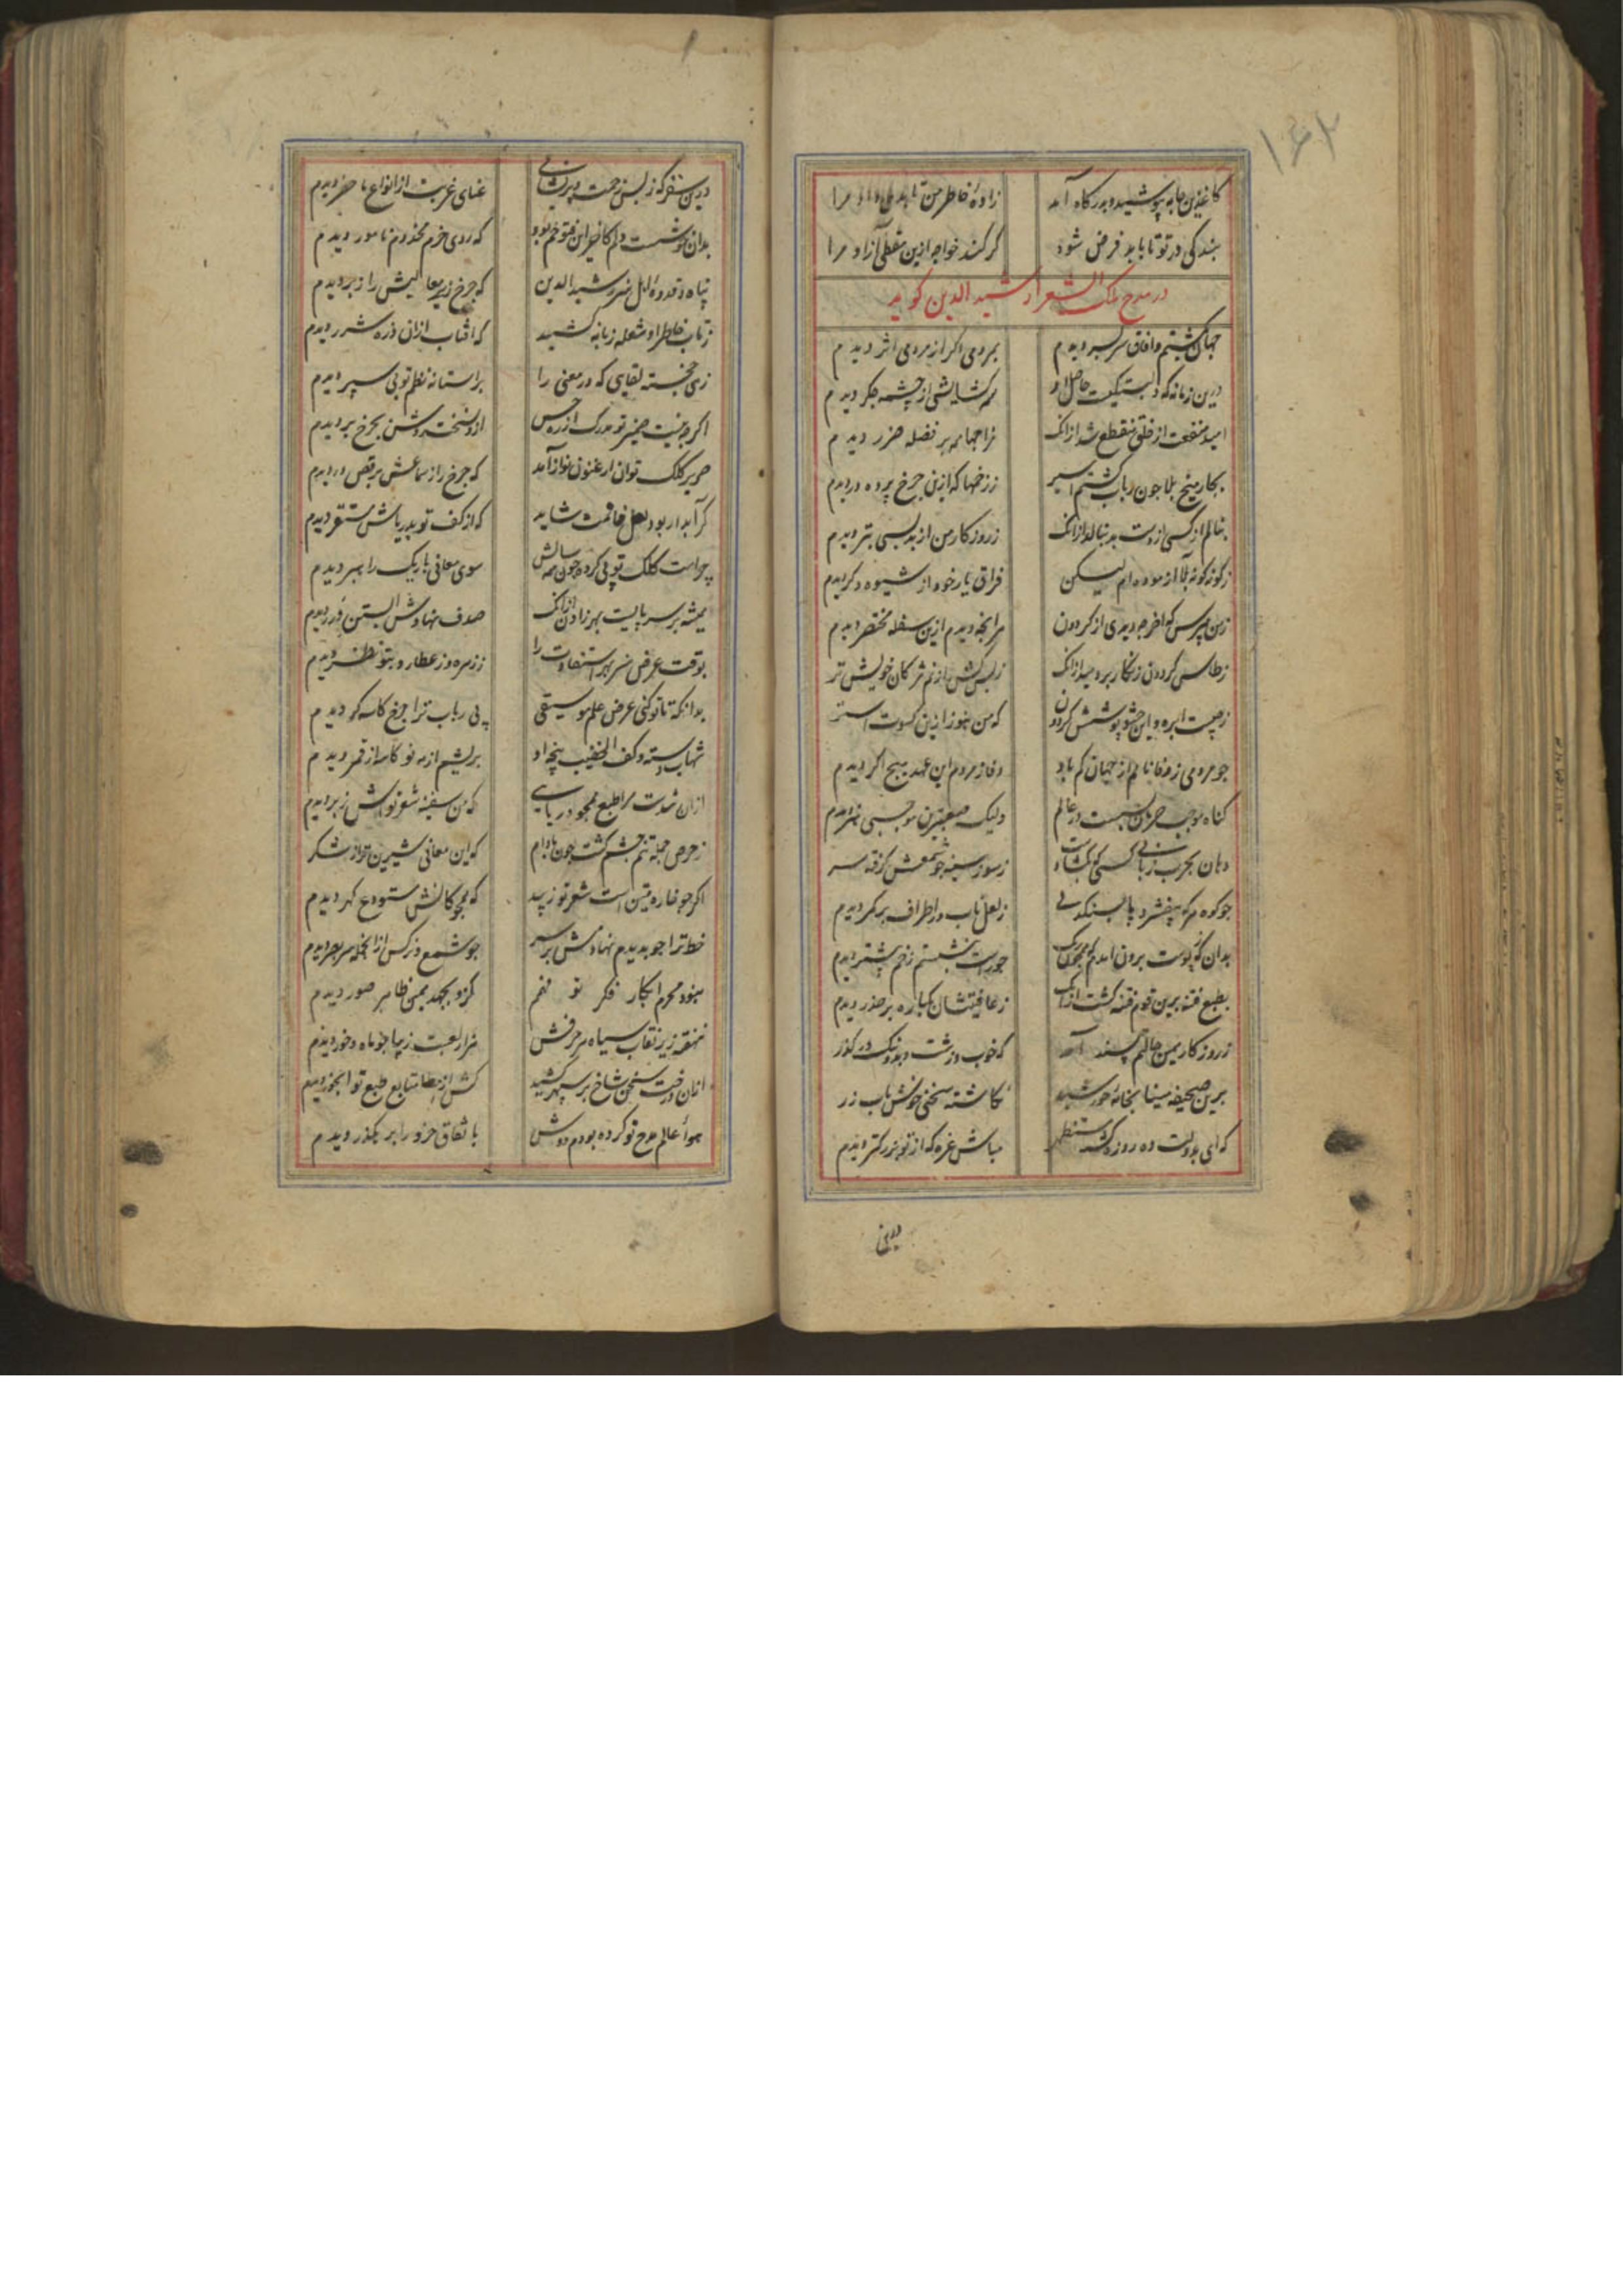 ۱۶۲
کاغذین جامه بپوشید و بدرکاه آمد زادهٔ خاطر من تا بدهی داد مرا
بندکی در تو تا باید فرض شود کر کند خواجه ازین مغلی آزاد مرا
در مدح ملک الشعرا رشید الدین کوید
جهان بکشتم و آفاق سربسر دیدم بمردمی اکر از مردمی اثر دیدم
درین زمانه که دلبستکیست حاصل او همه کشایشی از چشمه جکر دیدم
امید منفعت از خلق منقطع شد ازانک مزاجها همه بر فضله ضرر دیدم
بچار میخ بلا چون رباب کشتم اسیر ز زخمها که ازین چرخ پرده در دیدم
بنالم ار کسی از دست بد بنالد ازانک ز روزکار من از بد بسی بتر دیدم
ز کونه کونه بلا آزموده ام لیکن فراق یار خود از شیوه دکر دیدم
ز من مپرس که آخر چه دیدی از کردون هر آنچه دیدم ازین سفله مختصر دیدم
ز طاس کردون زنکار بردمید ازانک ز بس کش از نم مژکان خویش تر
ز چیست ابره و این حشو پوشش کردون که من هنوز ازین کسوت آستر
چو مردمی ز وفا نامم از جهان کم باد وفا ز مردم این عهد هیچ اکر دیدم
کناه موجب حرمان بسیست در عالم ولیک صعبترین موجبی هنر دیدم
دهان بچرب زبانی کسی که بکشادست ز سوز سینه چو شمعش کرفته سر
چو کوه هر که بیفشرد پا بسنکدلی ز لعل ناب در اطراف بر کمر دیدم
بدان که پوست برون آمدم چو
بطبع فتنه برین قوم فتنه کشت ازانک ز عافیتشان یکباره بر حذر دیدم
ز روزکار بمین حالم پسند آمد که خوب و زشت و بد و نیک در کذر
برین صحیفه مینا بخامهٔ خورشید نکاشته سخنی خوش بآب زر
که ای بدولت ده روزه کشته مستظهر مباش غره که از تو بزرکتر دیدم
درین
درین سفر که ز بس زحمت و پریشانی عنای غربت از انواع ما حضر دیدم
بدان خوشست دلم کاخر این فتوحم بود که روی خرم مخدوم نامور دیدم
پناه و قدوه اهل هنر رشید الدین که چرخ زیر معالیش را زبر دیدم
ز تاب خاطر او شعله زبانه کشید که آفتاب ازان ذره شرر دیدم
زهی خجسته لقایی که در معنی را بر آستانه نظم تو پی سپر دیدم
اکر چه نیست ضمیر تو مدرک از ره حس ازو شخته روشن بچرخ بر دیدم
صریر کلک تو آن ارغنون نواز آمد که چرخ را ز سماعش برقص در دیدم
کر آبدار بود لعل خاتمت شاید که از کف تو بدریاش مستقر دیدم
چراست کلک تو پی کرده چون همه سالش سوی معانی باریک راهبر دیدم
همیشه بر سر پایست بهر زادن ازانک صدف نهادش آبستن درر دیدم
بوقت عرض هنر بهر استفادت را ز زهره و ز عطارد بتو نظر دیدم
بدانکه تا تو کنی عرض علم موسیقی پی رباب ترا چرخ کاسه کر دیدم
شهاب دسته و کف الخضیب پنجه او بریشم از مه نو کاسه از قمر دیدم
ازان شدست مرا طبع همچو دریایی که من سفینه شعر تواش زبر دیدم
ز حرص جمله تنم چشم کشت چون بادام که این معانی شیرین تر از شکر
اکر چو خاره متین است شعر تو زیبد که همچو کانش مستودع کهر دیدم
خط ترا چو بدیدم نهادمش بر سر چو شمع و نرکس ازانجمله سر بصر دیدم
نبود محرم ابکار فکر تو فهم کزو بجهد همین ظاهر صور دیدم
نهفته زیر نقاب سیاه هر حرفش هزار لعبت زیبا چو ماه و خور دیدم
ازان درخت سخن شاخ بر سپهر کشید کش از مطابع طبع تو آبخور دیدم
هوا عالم مدح تو کرده بودم دوش باتفاق خرد را بر کذر دیدم